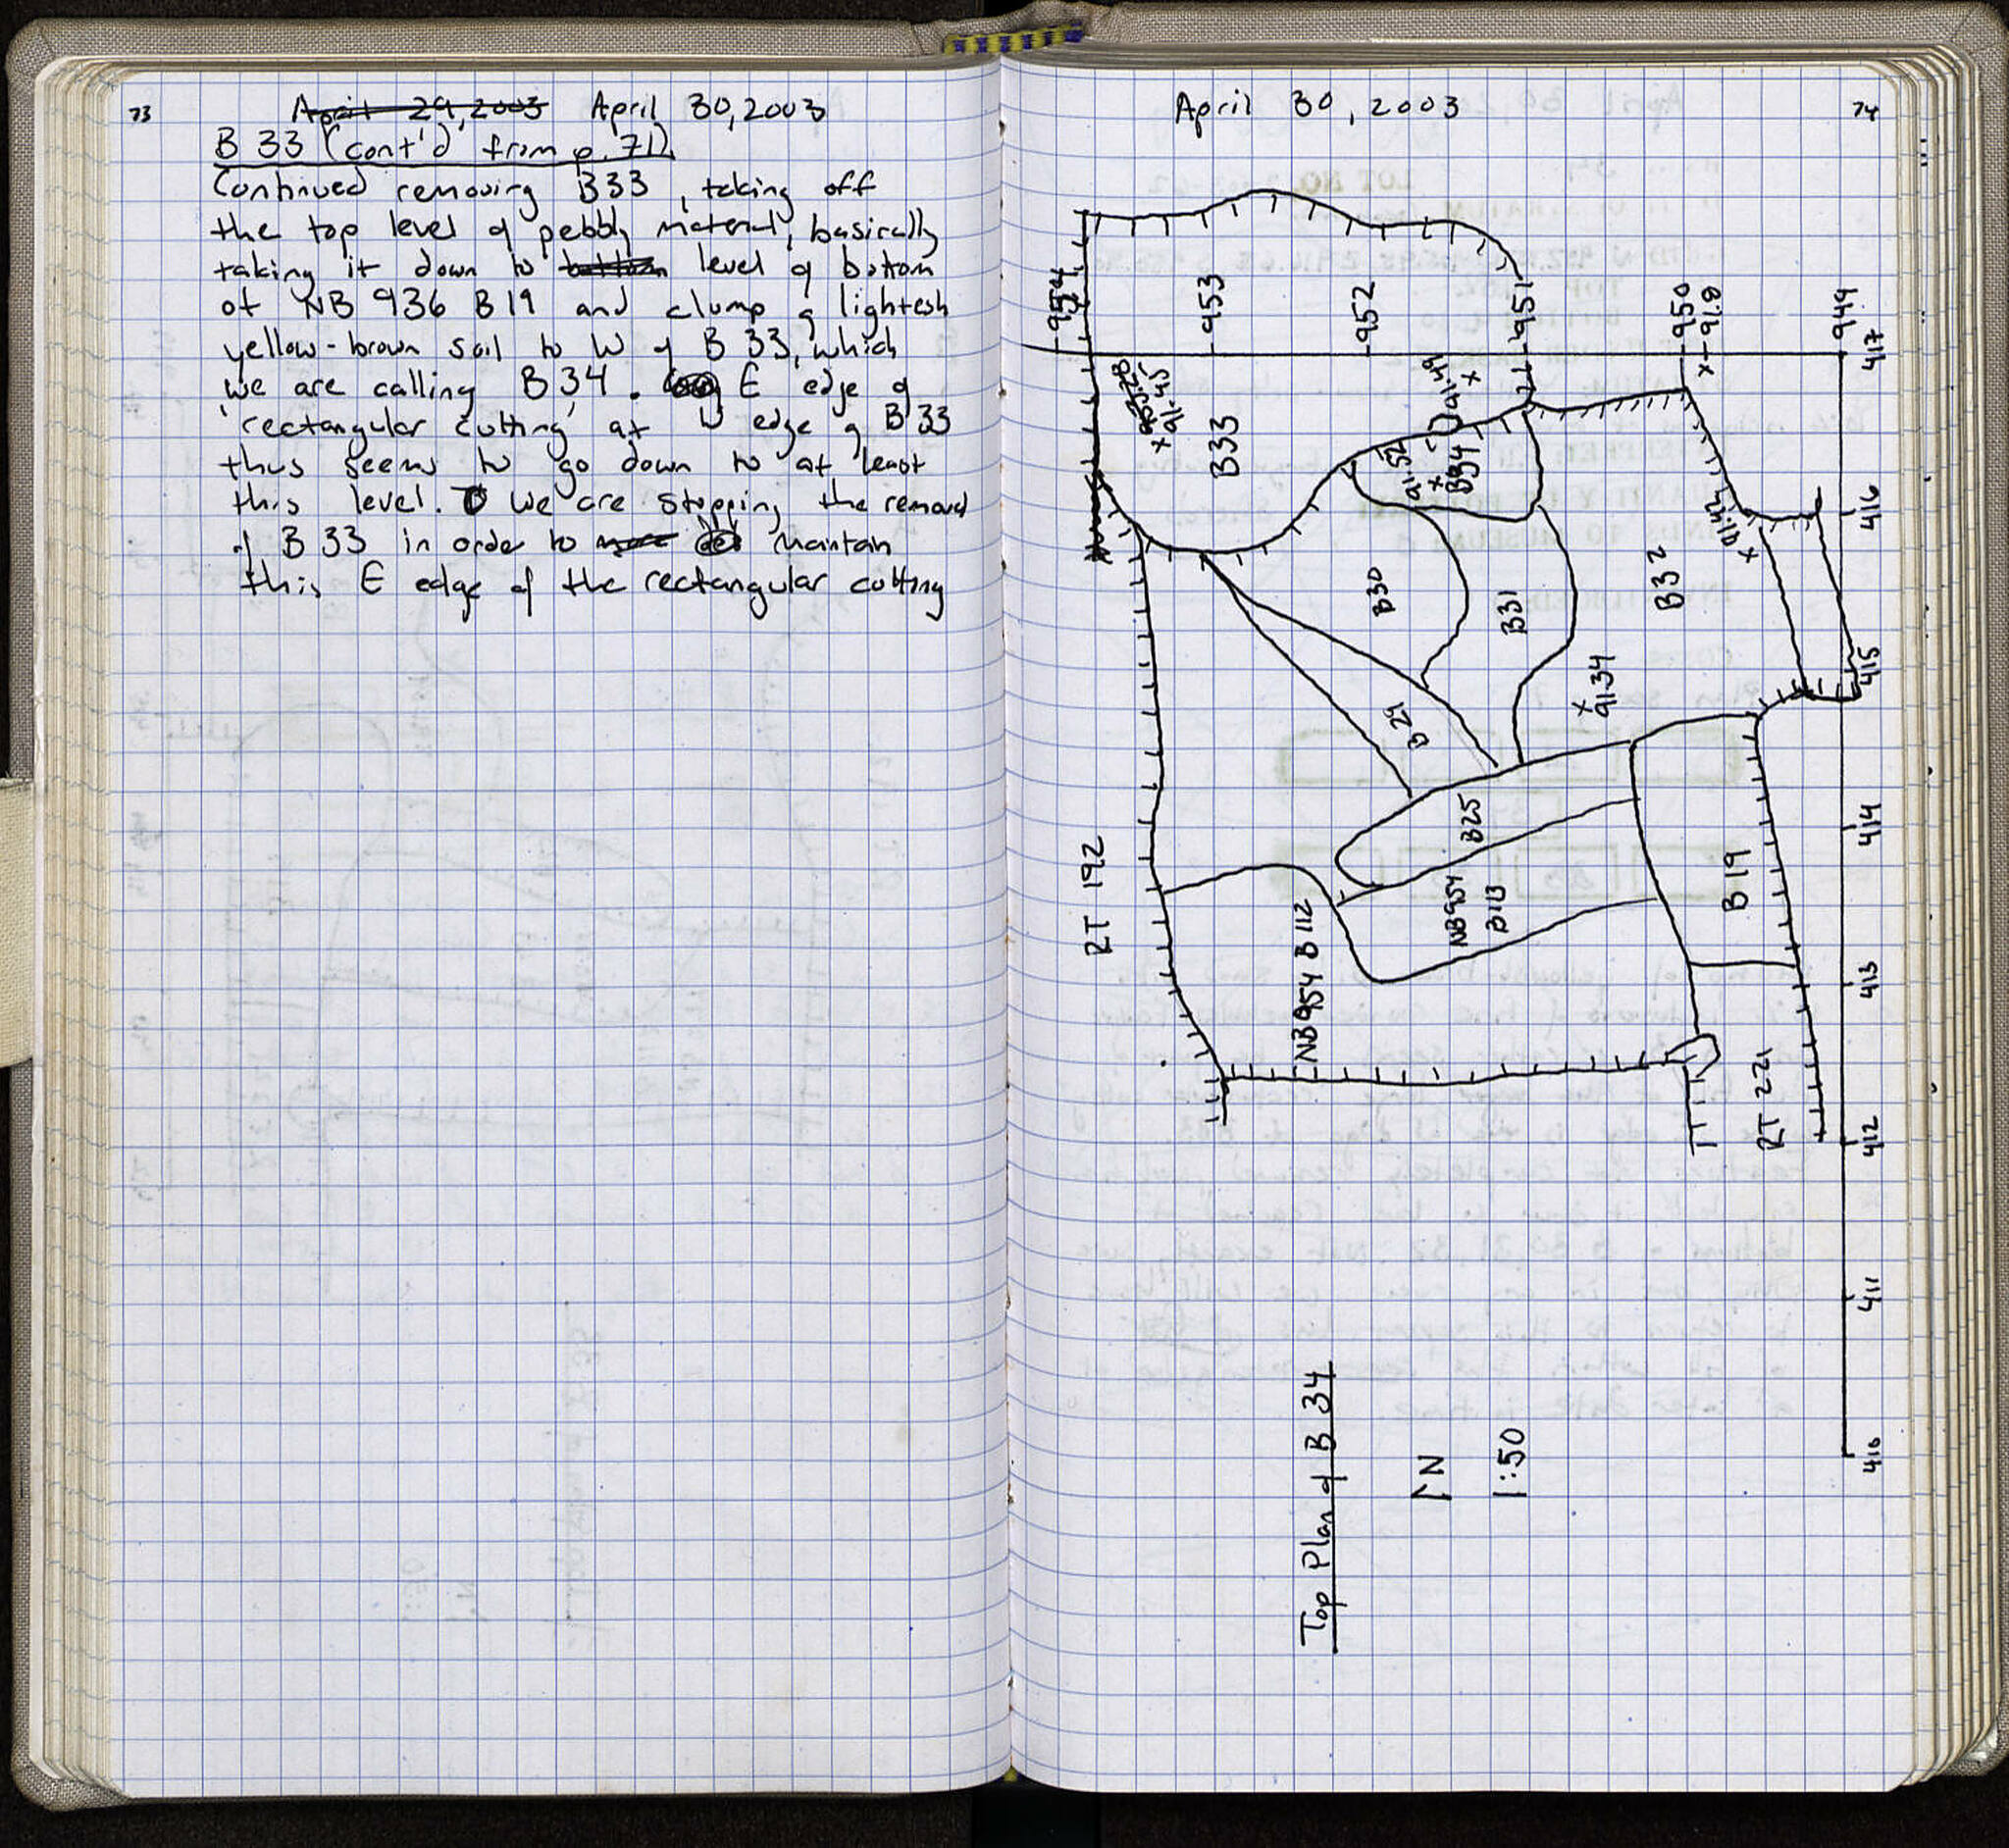 73
April 29, 2003 April 30, 2003
B 33 (cont'd from p. 71)
Continued removing B33, taking off
the top level of pebbly material, basically
taking it down to bottom level of bottom
of NB 936 B19 and clump of lightish
yellow-brown soil to W of B 33, which
we are calling B34. E edge of
'rectangular cutting' at W edge of B33
thus seems to go down to at least
this level. We are stopping the removal
of B 33 in order to maintain
this E edge of the rectangular cutting
April 30, 2003
74
954
953
952
951
950
949
x 91.9
417
416
415
414
413
412
411
410
x 91.45
B33
91.52
x
B34
91.49
x
x 91.43
B30
B31
B32
x
91.34
B29
B25
NB954
B113
B19
RT 192
NB954 B112
RT 221
Top Plan of B 34
N
1:50